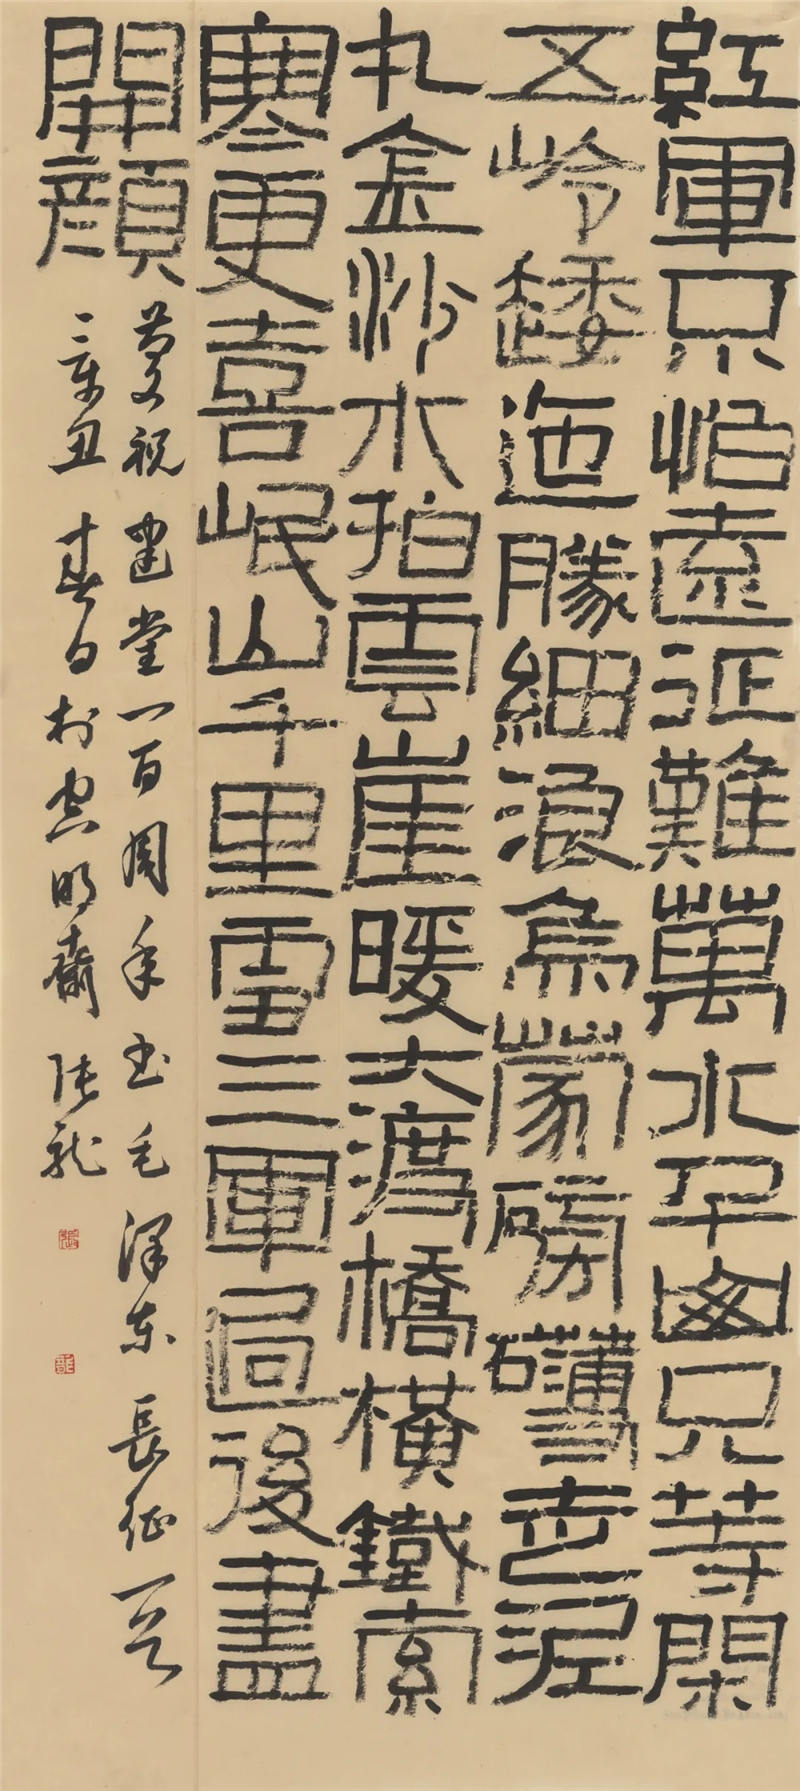 紅軍不怕遠征難萬水千山只等閑
五岭逶迤騰細浪烏蒙磅礴走泥
丸金沙水拍雲崖暖大渡橋橫鐵索
寒更喜岷山千里雪三軍過後盡
開顏
慶祝建黨一百周年書毛澤东長征一首
辛丑春日於明齋張龍
張
龍